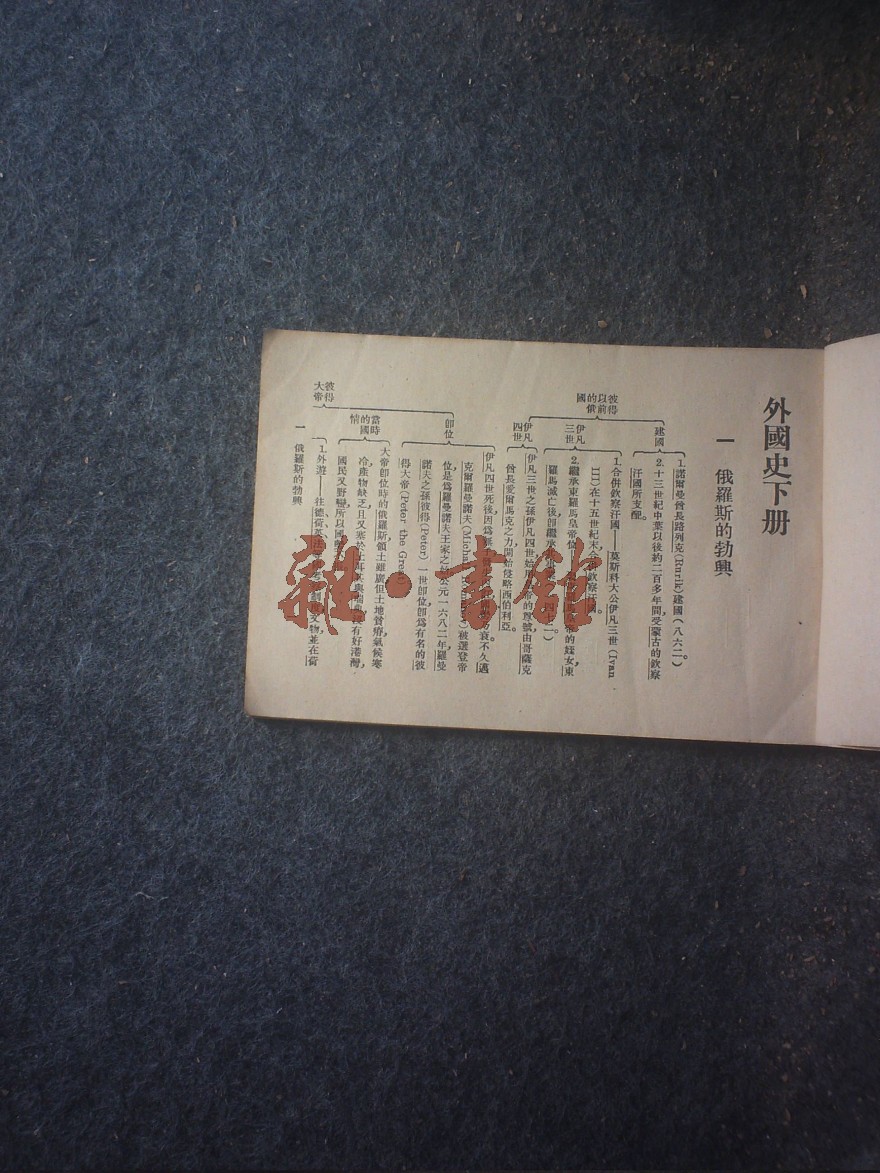 外國史下册
一　俄羅斯的勃興
彼得以前的俄國
建國
1.諾爾曼酋長路列克(Rurik)建國(八六二)。
2.十三世紀中葉以後約二百多年間受蒙古的欽察
汗國所支配。
伊凡三世
1.合併欽察汗國——莫斯科大公伊凡三世(Ivan
III)在十五世紀末,欽察汗國。
2.繼承東羅馬皇帝位,帝的姪女,東
羅馬滅亡後,卽繼承
伊凡四世
伊凡三世之孫伊凡四世始用帝的尊號,由哥薩克
酋長愛爾馬克之力,開始侵略西伯利亞。
彼得大帝
卽位
伊凡四世死後,因爲衰。不久,邁
克爾羅曼諾夫(Michael)被選登帝
位,是爲羅曼諾夫王家之公元一六八二年,羅曼
諾夫之孫彼得(Peter)一世卽位,卽爲有名的彼
得大帝(Peter the Great)
當時的國情
大帝卽位時的俄羅斯領土雖廣,但土地貧瘠,氣候寒
冷,產物缺乏,且又塞於有好港灣,
國民又野蠻,所以國
1.外游——往德、荷、英、法文物,並在荷
一　俄羅斯的勃興
雜·書館